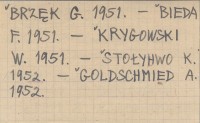 "BRZĘK G. 1951. – "BIEDA
F. 1951. – "KRYGOWSKI
W. 1951. – "STOŁYHWO K.
1952. – "GOLDSCHMIED A.
1952.